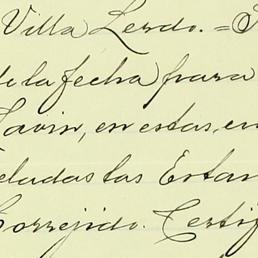 Villa Lerdo. =
de la fecha para
Lavin, en estas, en
celadas las Estam
Correjido. Certif